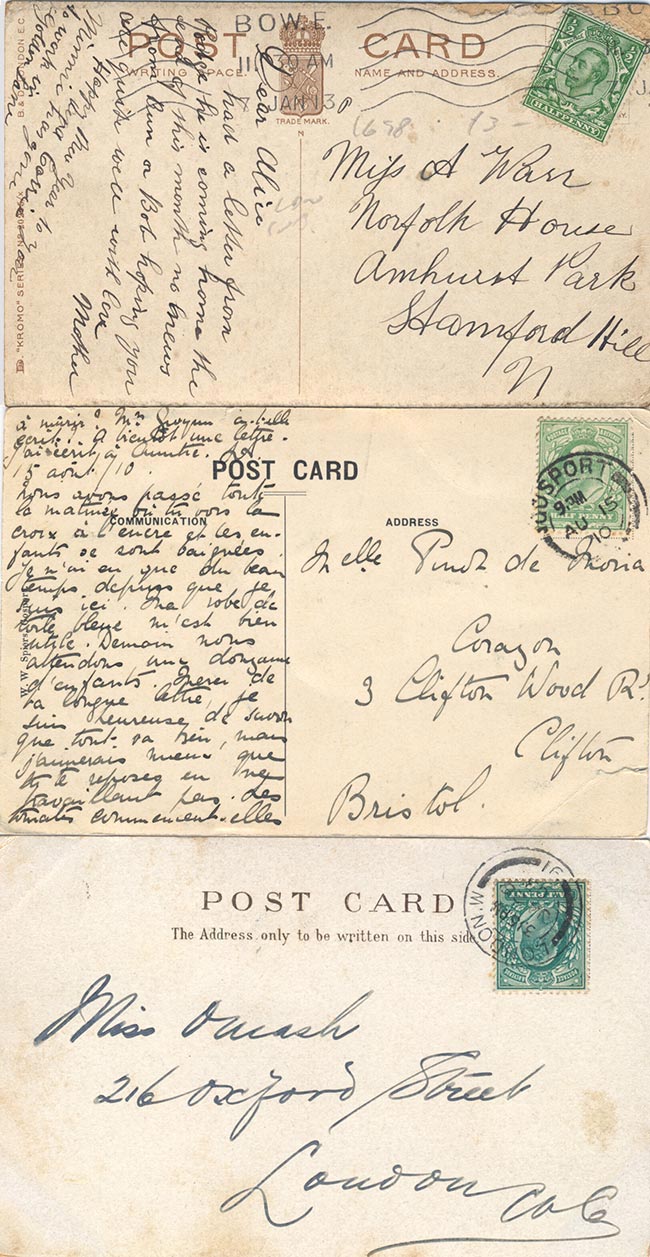 BOW. E.
11 30 AM
JAN 13
POST CARD
WRITING SPACE.
NAME AND ADDRESS.
TRADE MARK.
B & D LONDON E.C.
"KROMO" SERIES
HALFPENNY
Dear Alice
had a letter from
he is coming home the
end of this month no news
from or Bob hoping you
are quite well with love
Mother
1698
13 -
Miss A Warr
Norfolk House
Amhurst Park
Stamford Hill
N
POST CARD
COMMUNICATION
ADDRESS
GOSPORT
9 PM
AU 15
10
HALF PENNY
à mûrir? Mme a-t-elle
écrit? A bientôt une lettre.
J'ai écrit à
15 août /10.
Nous avons passé toute
la matinée où tu vois la
croix à l'encre et les en-
fants se sont baignés.
Je n'ai eu que du beau
temps depuis que je
suis ici. Ma robe de
toile bleue m'est bien
utile. Demain nous
attendons une douzaine
d'enfants. Merci de
ta longue lettre, je
suis heureuse de savoir
que tout va bien, mais
j'aimerais mieux que
tu te reposes en ne
travaillant pas. Les
tomates commencent-elles
W. W. Spiers, Gosport
Melle Pinot de Moira
Corazon
3 Clifton Wood Rd.
Clifton
Bristol.
POST CARD
The Address only to be written on this side
Miss
216 Oxford Street
London